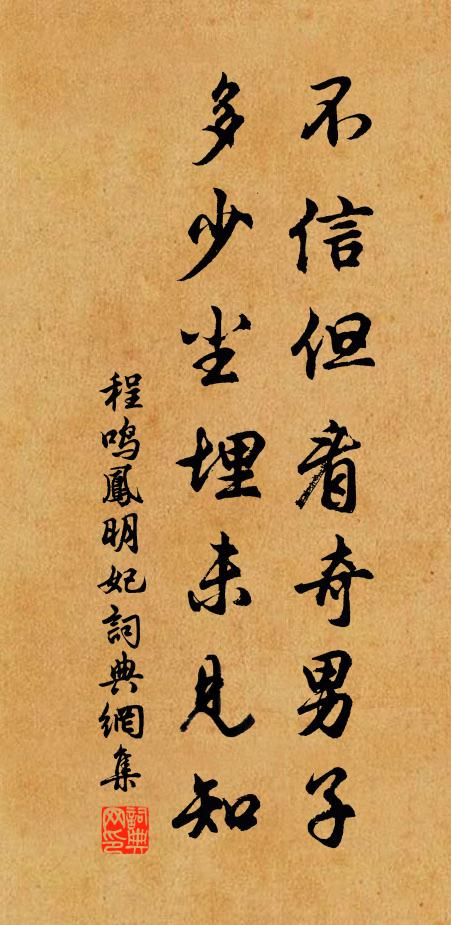 不信但看奇男子
多少尘埋未见知
程鸣鳳明妃詞典網集
詞典网印